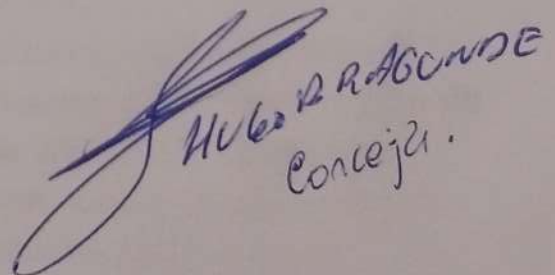 HUGO R RAGUNDE
Concejal.